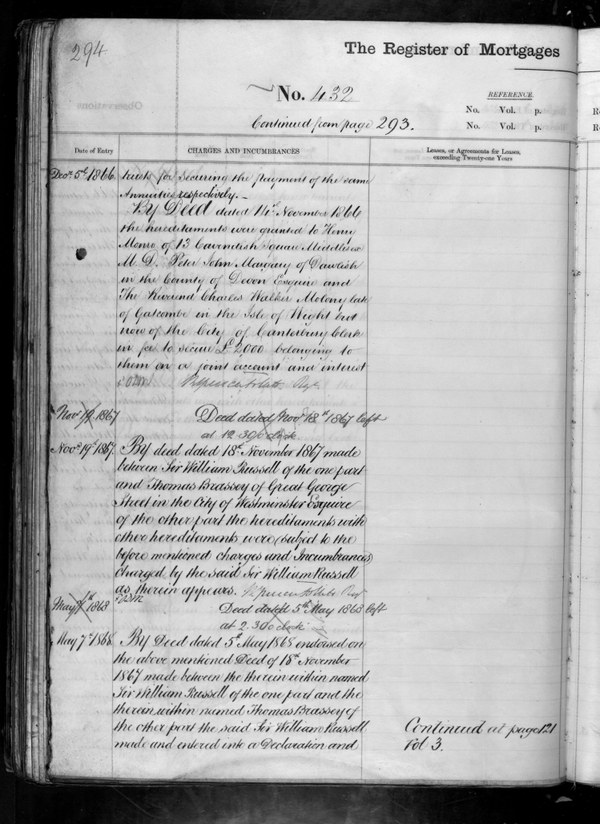 294
The Register of Mortgages
No. 432
REFERENCE.
No. Vol. p.
Continued from page 293.
No. Vol. p.
Date of Entry
CHARGES AND INCUMBRANCES
Leases, or Agreements for Leases, exceeding Twenty-one Years
Decr. 5th 1866
trusts for securing the payment of the same
Annuities respectively.
By Deed dated 14th November 1866
the hereditaments were granted to Henry
Monro of 13 Cavendish Square Middlesex
M.D. Peter John Margary of Dawlish
in the County of Devon Esquire and
The Reverend Charles Walker Molony late
of Gatcombe in the Isle of Wight but
now of the City of Canterbury Clerk
in fee to secure £2000 belonging to
them on a joint account and interest
Novr. 19 1867
Deed dated Novr 18th 1867 left
at 12.30 o'clock
Novr. 19th 1867.
By deed dated 18th November 1867 made
between Sir William Russell of the one part
and Thomas Brassey of Great George
Street in the City of Westminster Esquire
of the other part the hereditaments with
other hereditaments were (subject to the
before mentioned charges and Incumbrances)
charged by the said Sir William Russell
as therein appears.
May 7th 1868
Deed dated 5th May 1868 left
at 2.30 o'clock
May 7th 1868.
By Deed dated 5th May 1868 endorsed on
the above mentioned Deed of 18th November
1867 made between the therein within named
Sir William Russell of the one part and the
therein within named Thomas Brassey of
the other part the said Sir William Russell
made and entered into a Declaration and
Continued at page 121
Vol 3.